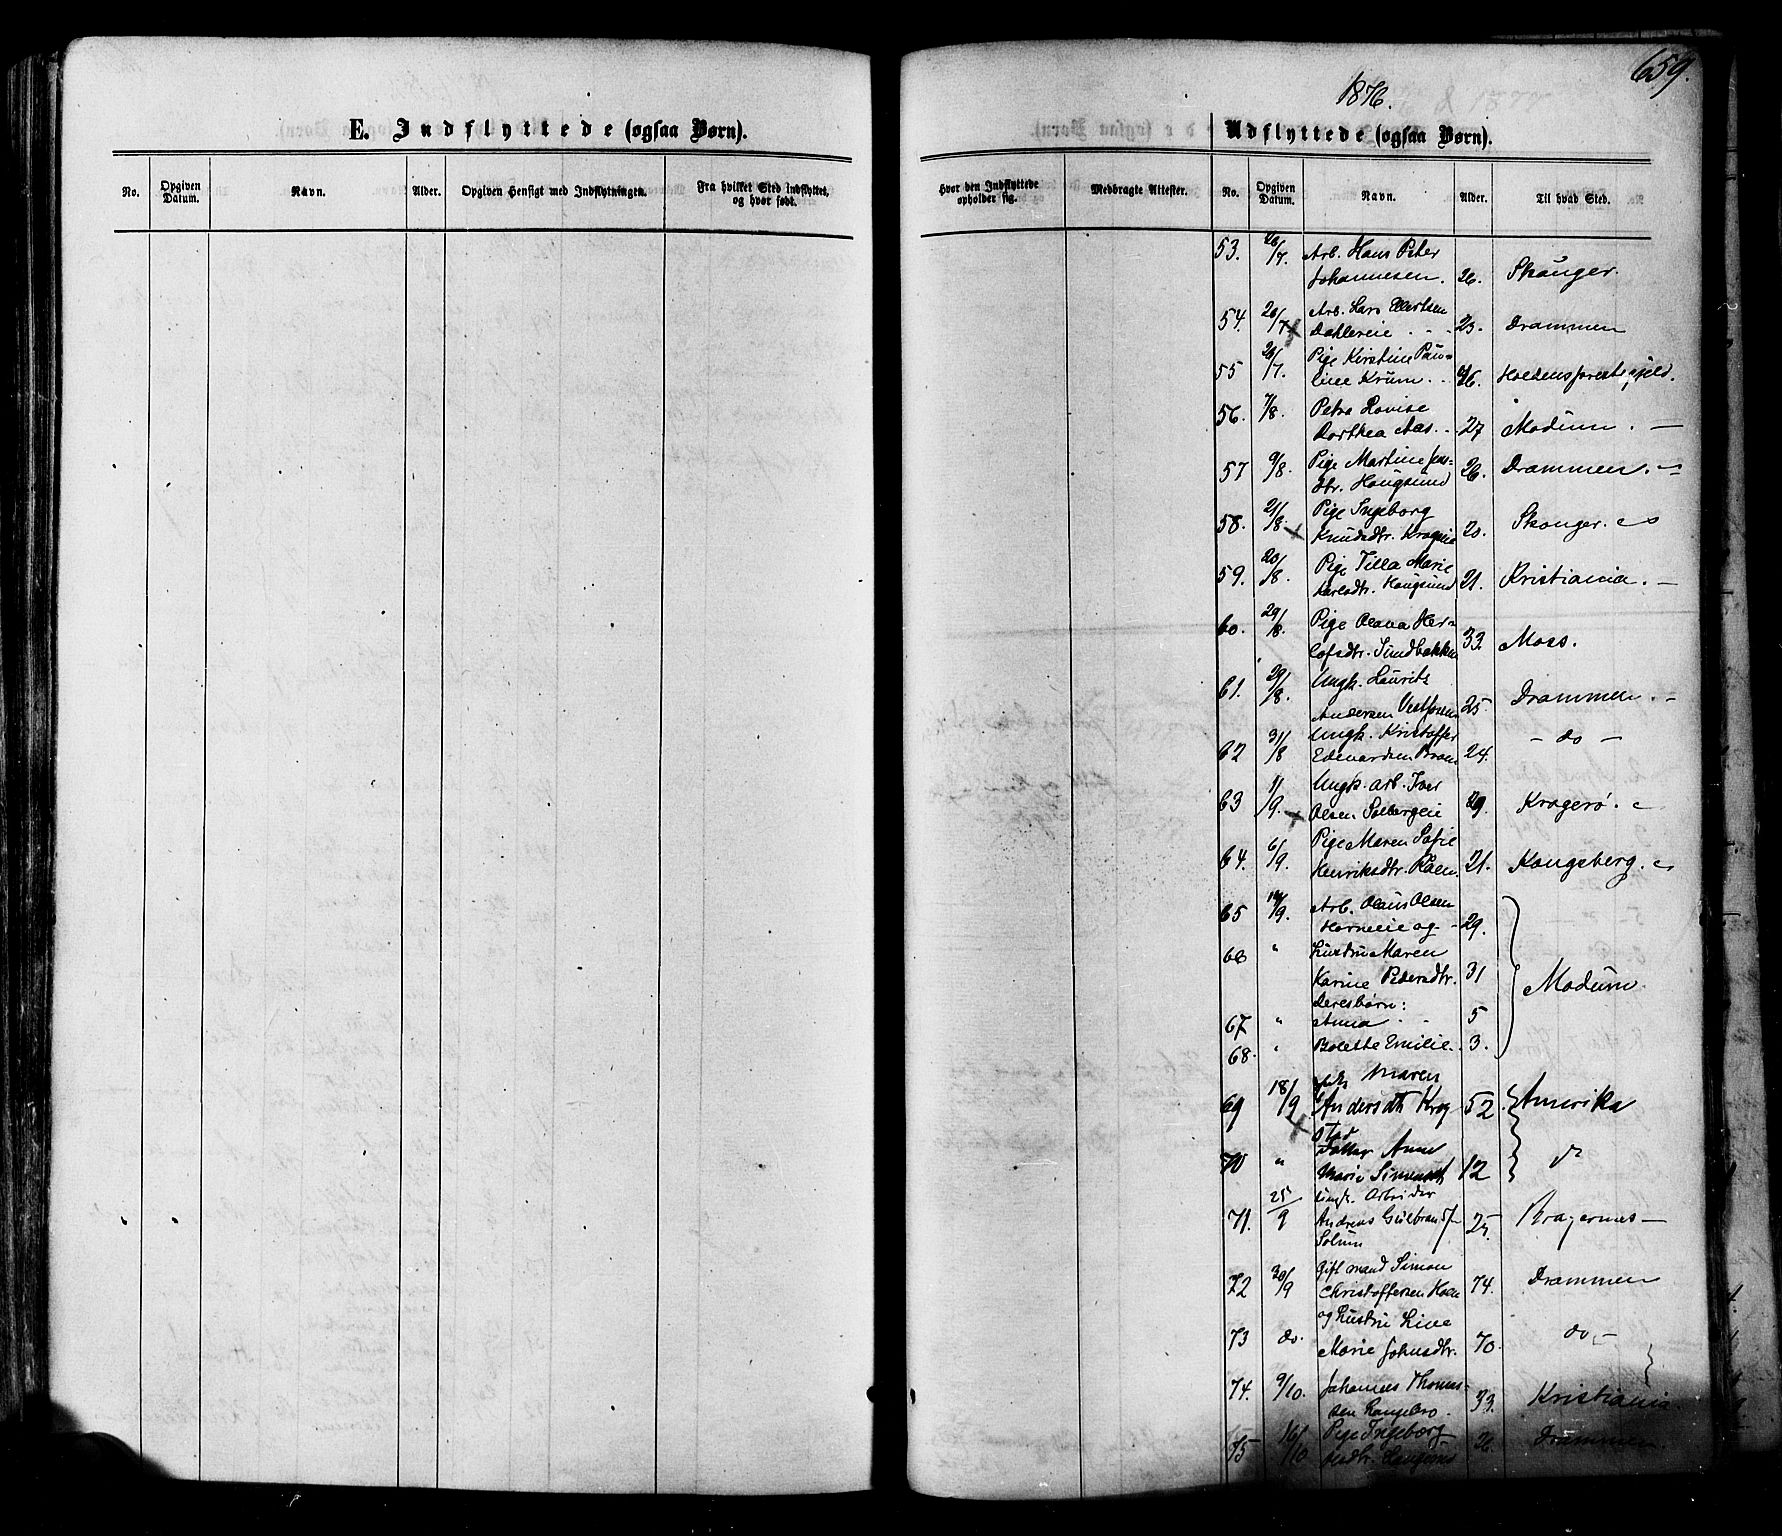 659.
1876.
E. Indflyttede (ogsaa Børn).
Udflyttede (ogsaa Børn).
No. Opgiven Datum. Navn. Alder. Opgiven Hensigt med Indflytningen. Fra hvilket Sted indflyttet, og hvor født.
Hvor den Indflyttede opholder sig. Medbragte Attester. No. Opgiven Datum. Navn. Alder. Til hvad Sted.
53. 26/7. Arb. Hans Peter
Johannesen. 26. Skouger.
54. 26/7 Arb. Lars
Dahlereie 23. Drammen
55 26/7. Pige Kirstine Pau-
line Krüm 26.
56. 7/8. Petra Lovise
Dorthea Aas. 27 Modum.
57 9/8. Pige Martine Jens-
dtr. Hougsund 26. Drammen.
58. 21/8. Pige Ingeborg
Knudsdtr. 20. Skouger.
59. 20/8. Pige Tilla Marie
Karlsdtr. Hougsund 21. Kristiania.
60. 29/8. Pige Olava Her-
lofsdtr. Sundbakken 33. Moss.
61. 29/8. Ungk. Laurits
Andersen Vestfossen 25. Drammen.
62 31/8 Ungk. Kristoffer
Edvardsen 24. - do -
63 1/9. Ungk. arb. Iver
Olsen Solbergeie 29. Kragerø.
64. 6/9. Pige Maren Sofie
Henriksdtr. 21. Kongsberg.
65 14/9. Arb. Olaus Olsen
Horneie og 29.
66 " Hustru Maren
Karine Pedersdtr. 31 Modum.
deres børn:
67 " Anna 5
68. " Bolette Emilie. 3.
69 18/9 Maren
Andersdtr Krog
stad 52. Amerika
70 " Datter Anne
Marie Simensdt 12 do
71. 25/9 Ungk. Arbeider
Andreas Gulbrands.
Solum 25. Bragernes
72 30/9 Gift mand Simon
Christoffersen Hoen 74. Drammen
73 do. og Hustru Line
Marie Johnsdtr. 70. do.
74. 9/10. Johannes Thomas-
sen Langebro. 33. Kristiania.
75 16/10 Pige Ingeborg
26 Drammen.